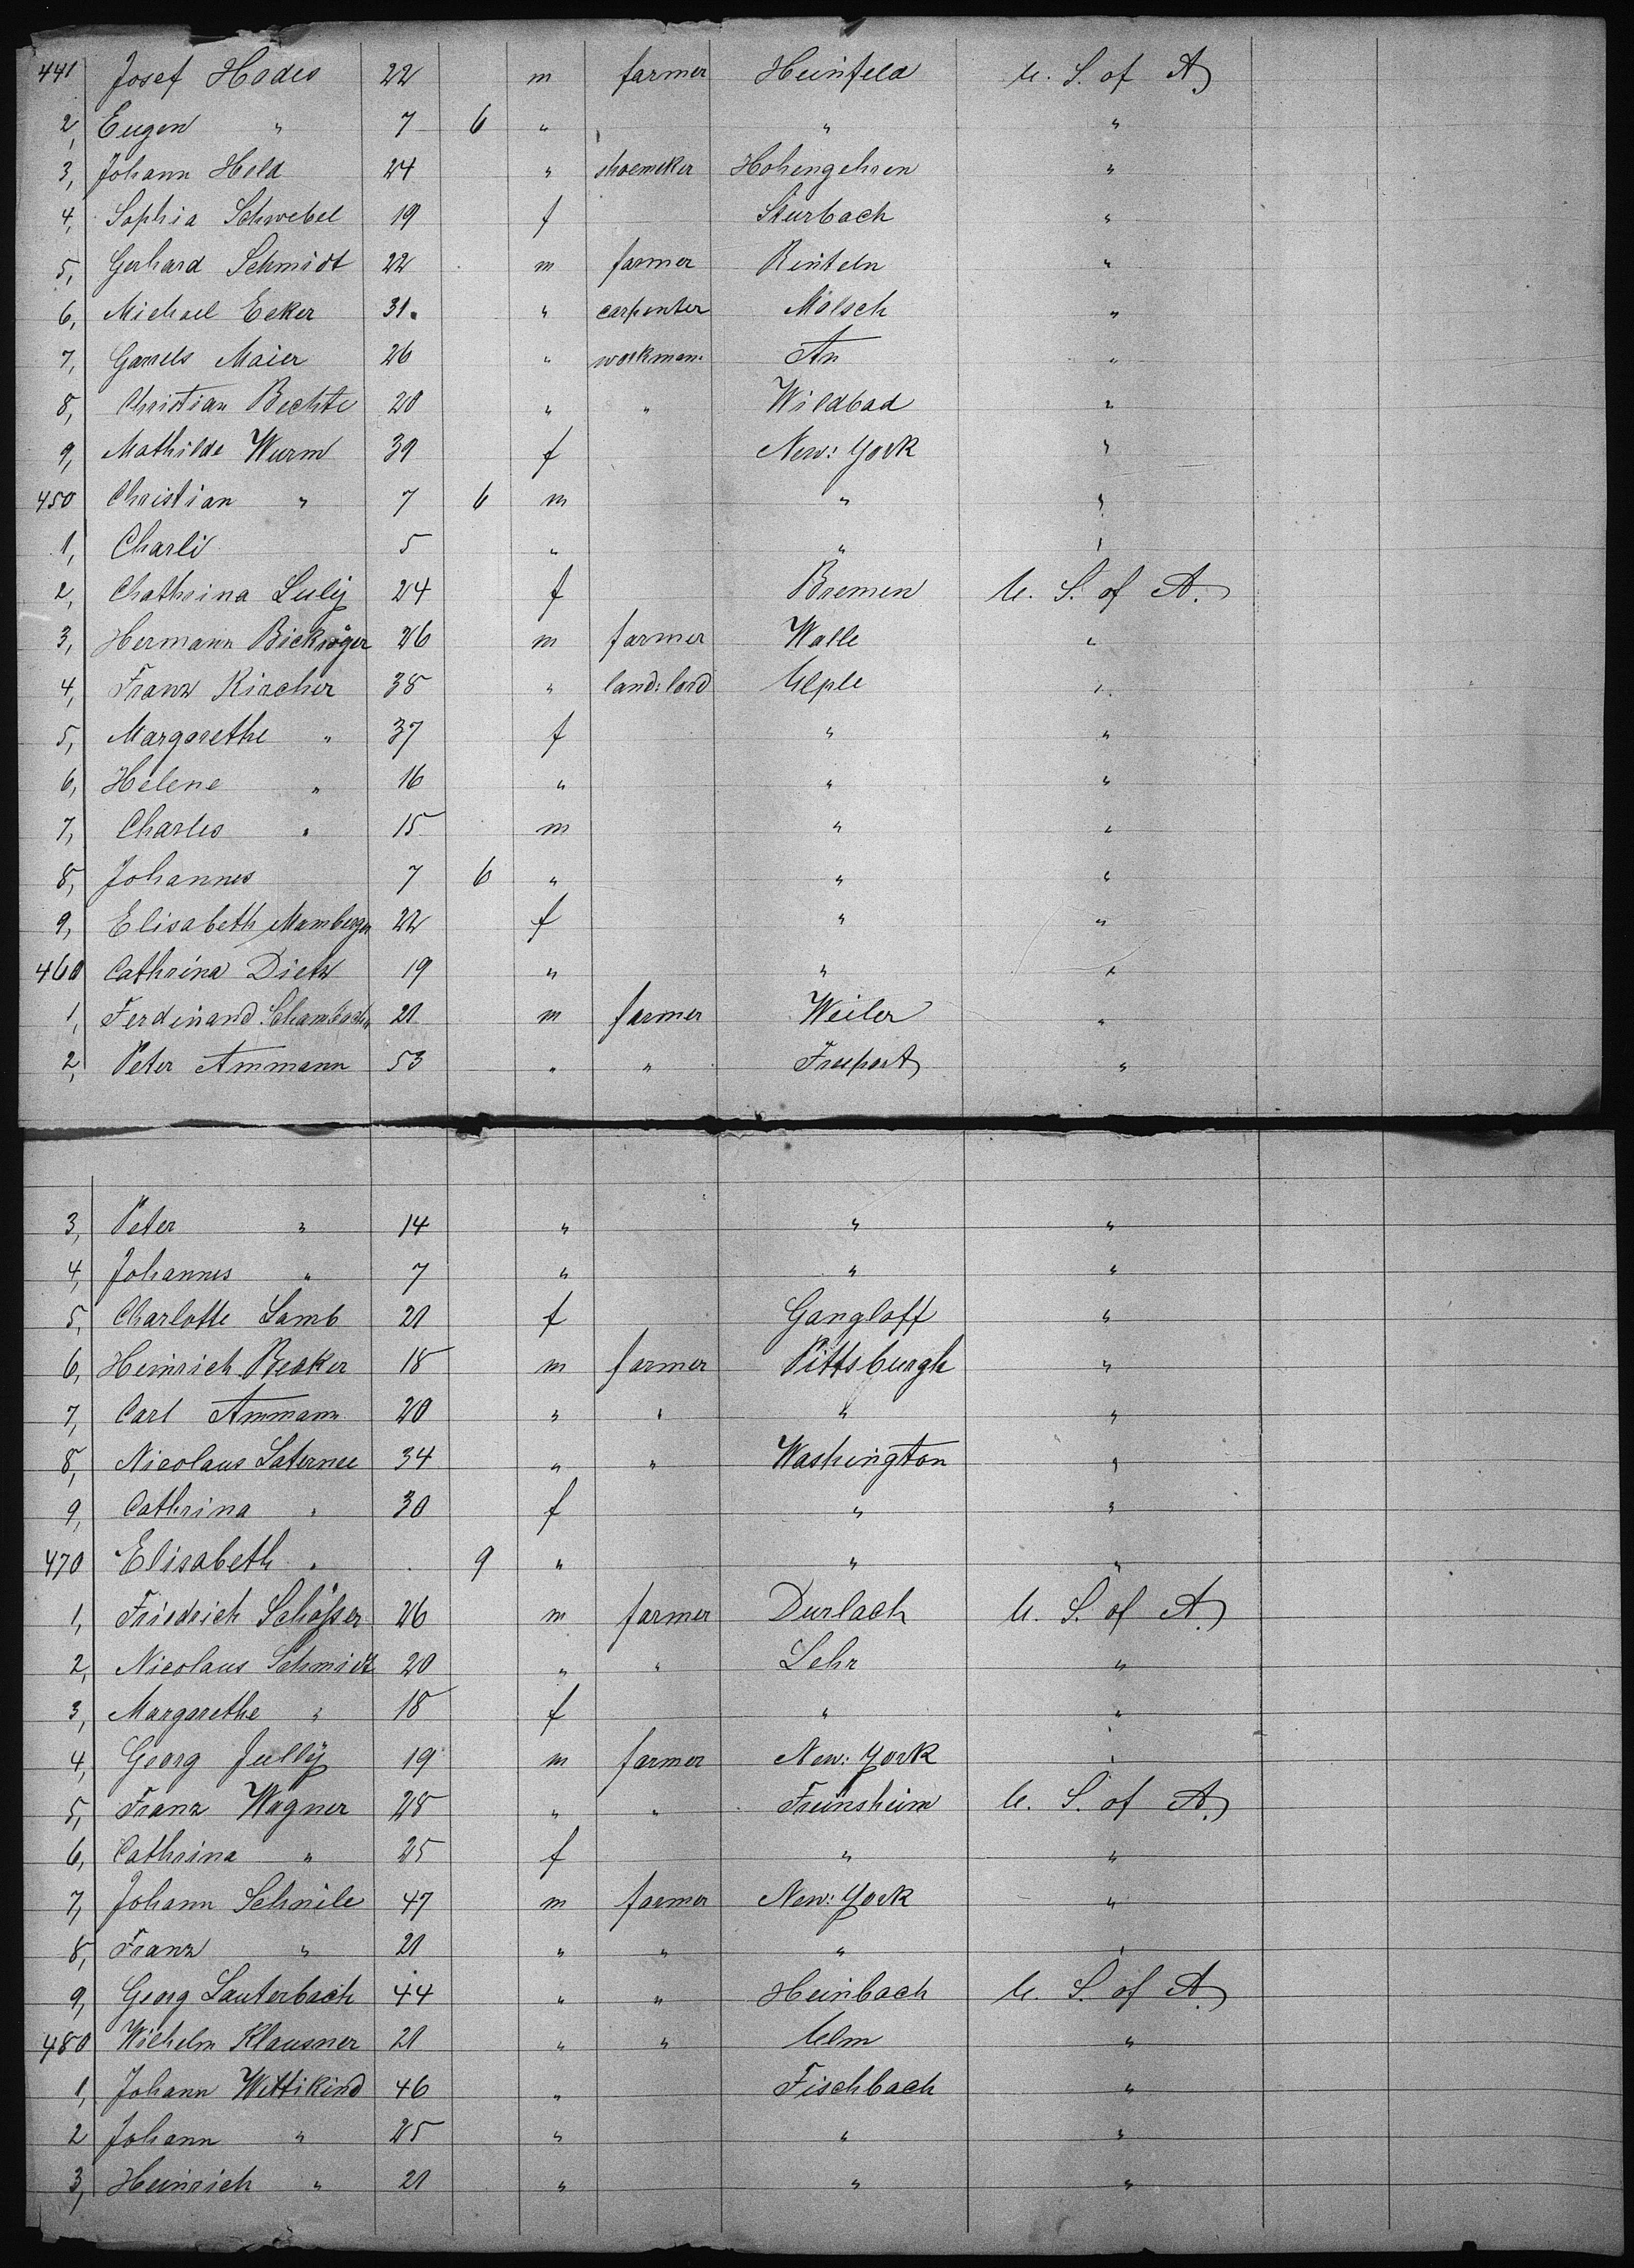 441 Josef Hodes 22 m farmer Heinfeld U. S. of A.
2, Eugen " 7 6 " " "
3, Johann Held 24 " shoemeker Hohengehren "
4, Sophia Schwebel 19 f Sturbach "
5, Gerhard Schmidt 22 m farmer Rinteln "
6, Michael Ecker 31. " carpenter Malsch "
7, Gamels Maier 26 " workman An "
8, Christian Bechte 20 " " Wildbad "
9, Mathilde Wurm 39 f New: York "
450 Christian " 7 6 m " "
1, Charli 5 " " "
2, Chathrina Luly 24 f Bremen U. S. of A.
3, Hermann Bicknöger 26 m farmer Walle "
4, Franz Kircher 38 " land:lord Ulple "
5, Margarethe " 37 f " "
6, Helene " 16 " " "
7, Charles " 15 m " "
8, Johannes 7 6 " " "
9, Elisabeth Mamberger 22 f " "
460 Cathrina Dietz 19 " " "
1, Ferdinand Schambach 21 m farmer Weiler "
2, Peter Ammann 53 " " Freeport "
3, Peter " 14 " " "
4, Johannes " 7 " " "
5, Charlotte Lamb 21 f Gangloff "
6, Heinrich Becker 18 m farmer Pittsburgh "
7, Carl Ammann 20 " " " "
8, Nicolaus Laternee 34 " " Washington "
9, Cathrina " 30 f " "
470 Elisabeth " 9 " " "
1, Friedrich Schösser 26 m farmer Durlach U. S. of A.
2, Nicolaus Schmidt 20 " " Lehr "
3, Margarethe " 18 f " "
4, Georg Jully 19 m farmer New: York "
5, Franz Wagner 28 " " Freinsheim U. S. of A.
6, Cathrina " 25 f " "
7, Johann Schnile 47 m farmer New: York "
8, Franz " 21 " " " "
9, Georg Lauterbach 44 " " Heinbach U. S. of A.
480 Wilhelm Klausner 21 " " Ulm "
1, Johann Wittikind 46 " Fischbach "
2 Johann " 25 " " "
3, Heinrich " 21 " " "